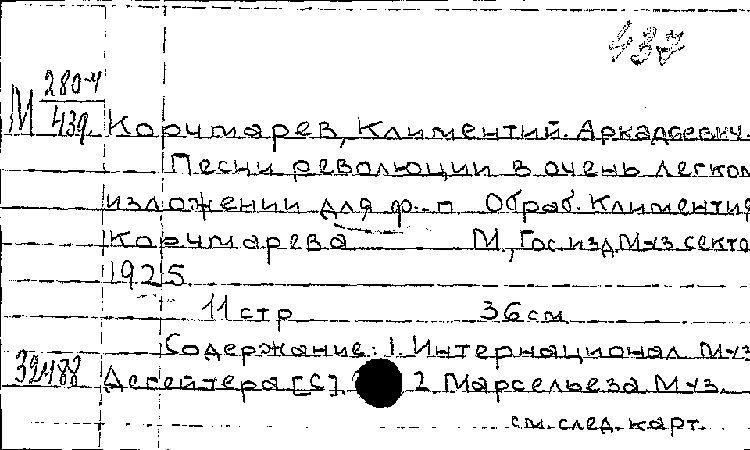 437
М 280-4
439.
Корчмарев, Климентий. Аркадьевич.
Песни революции в очень легком
изложении для ф.-п Обраб. Климентия
Корчмарева М., Гос. изд. Муз секто
1925.
11 стр 36 см
Содержание: 1. Интернационал Муз
Дегейтера [С]. 2. Марсельеза. Муз.
32488
см. след. карт.